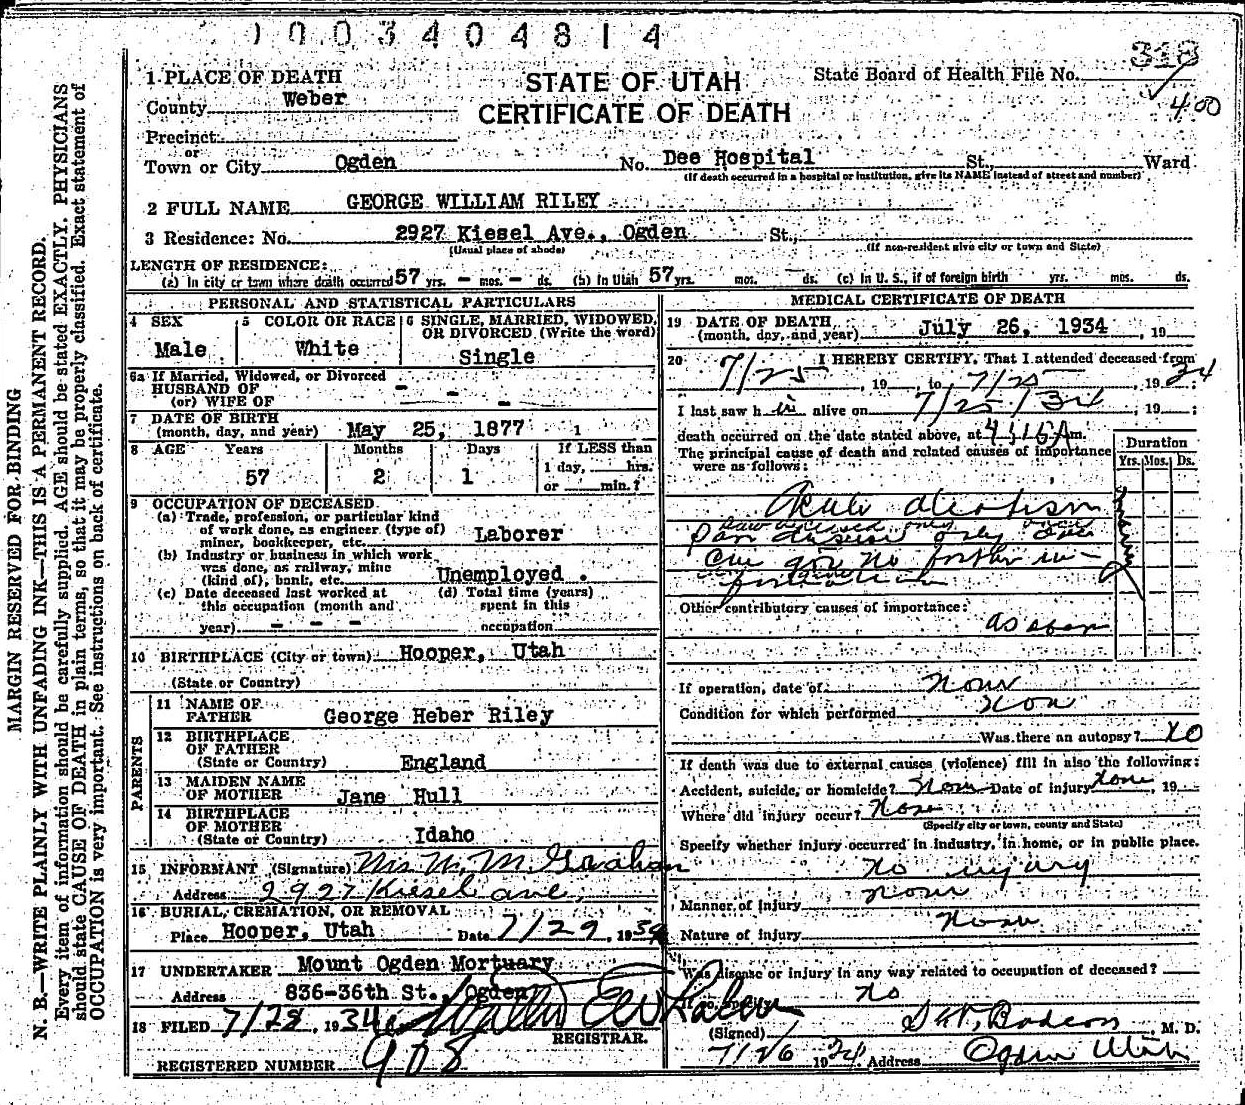 1003404814
318
400
STATE OF UTAH
CERTIFICATE OF DEATH
State Board of Health File No.
1 PLACE OF DEATH
County Weber
Precinct
or
Town or City Ogden No. Dee Hospital St. Ward
(If death occurred in a hospital or institution, give its NAME instead of street and number)
2 FULL NAME GEORGE WILLIAM RILEY
3 Residence: No. 2927 Kiesel Ave., Ogden St.,
(Usual place of abode) (If non-resident give city or town and State)
LENGTH OF RESIDENCE:
(a) In city or town where death occurred 57 yrs. - mos. - ds. (b) In Utah 57 yrs. mos. ds. (c) In U. S., if of foreign birth yrs. mos. ds.
PERSONAL AND STATISTICAL PARTICULARS
4 SEX
Male
5 COLOR OR RACE
White
6 SINGLE, MARRIED, WIDOWED,
OR DIVORCED (Write the word)
Single
6a If Married, Widowed, or Divorced
HUSBAND OF -
(or) WIFE OF - -
7 DATE OF BIRTH
(month, day, and year) May 25, 1877
8 AGE Years Months Days If LESS than
57 2 1 1 day, hrs.
or min.?
9 OCCUPATION OF DECEASED
(a) Trade, profession, or particular kind
of work done, as engineer (type of)
miner, bookkeeper, etc. Laborer
(b) Industry or business in which work
was done, as railway, mine
(kind of), bank, etc. Unemployed.
(c) Date deceased last worked at
this occupation (month and
year) - - -
(d) Total time (years)
spent in this
occupation
10 BIRTHPLACE (City or town) Hooper, Utah
(State or Country)
PARENTS
11 NAME OF
FATHER George Heber Riley
12 BIRTHPLACE
OF FATHER
(State or Country) England
13 MAIDEN NAME
OF MOTHER Jane Hull
14 BIRTHPLACE
OF MOTHER
(State or Country) Idaho
15 INFORMANT (Signature) Mrs
Address 2927 Kiesel ave,
16 BURIAL, CREMATION, OR REMOVAL
Place Hooper, Utah Date 7/29, 1934
17 UNDERTAKER Mount Ogden Mortuary
Address 836-36th St., Ogden
18 FILED 7/28, 1934
REGISTRAR.
REGISTERED NUMBER 908
MEDICAL CERTIFICATE OF DEATH
19 DATE OF DEATH
(month, day, and year) July 26, 1934, 19
20 I HEREBY CERTIFY, That I attended deceased from
7/25, 19 , to 7/25, 1934;
I last saw h alive on 7/25/34, 19 ;
death occurred on the date stated above, at m.
The principal cause of death and related causes of importance
were as follows:
Duration
Yrs. Mos. Ds.
no further in-
formation
Other contributory causes of importance:
as above
If operation, date of none
Condition for which performed non
Was there an autopsy? no
If death was due to external causes (violence) fill in also the following:
Accident, suicide, or homicide? None Date of injury none, 19
Where did injury occur? None
(Specify city or town, county and State)
Specify whether injury occurred in industry, in home, or in public place.
no injury
Manner of injury none
Nature of injury None
Was disease or injury in any way related to occupation of deceased?
If so, specify no
(Signed) M. D.
7/26 1934 Address Ogden Utah
MARGIN RESERVED FOR BINDING
N. B.—WRITE PLAINLY WITH UNFADING INK—THIS IS A PERMANENT RECORD.
Every item of information should be carefully supplied. AGE should be stated EXACTLY. PHYSICIANS
should state CAUSE OF DEATH in plain terms, so that it may be properly classified. Exact statement of
OCCUPATION is very important. See instructions on back of certificate.